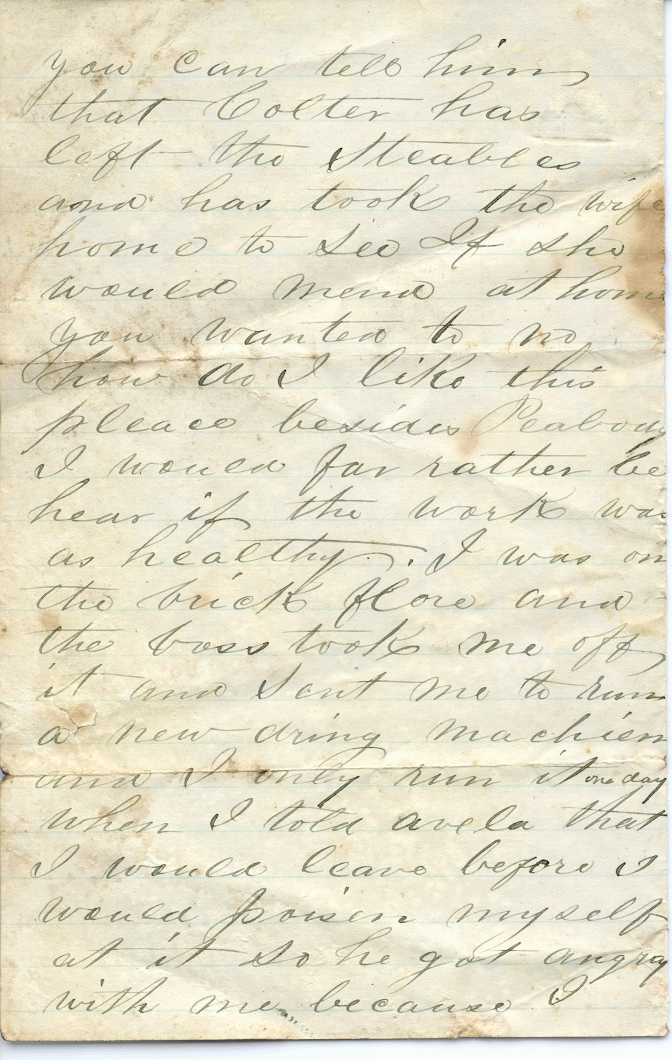 you can tell him
that Colter has
left the Steables
and has took the wife
home to see If she
would mend at home
you wanted to no
how do I like this
pleace besides Peabody
I would far rather be
hear if the work was
as healthy. I was on
the brick flore and
the boss took me off
it and sent me to run
a new dring machien
and I only run it one day
when I told avela that
I would leave before I
would poisen myself
at it so he got angry
with me because I